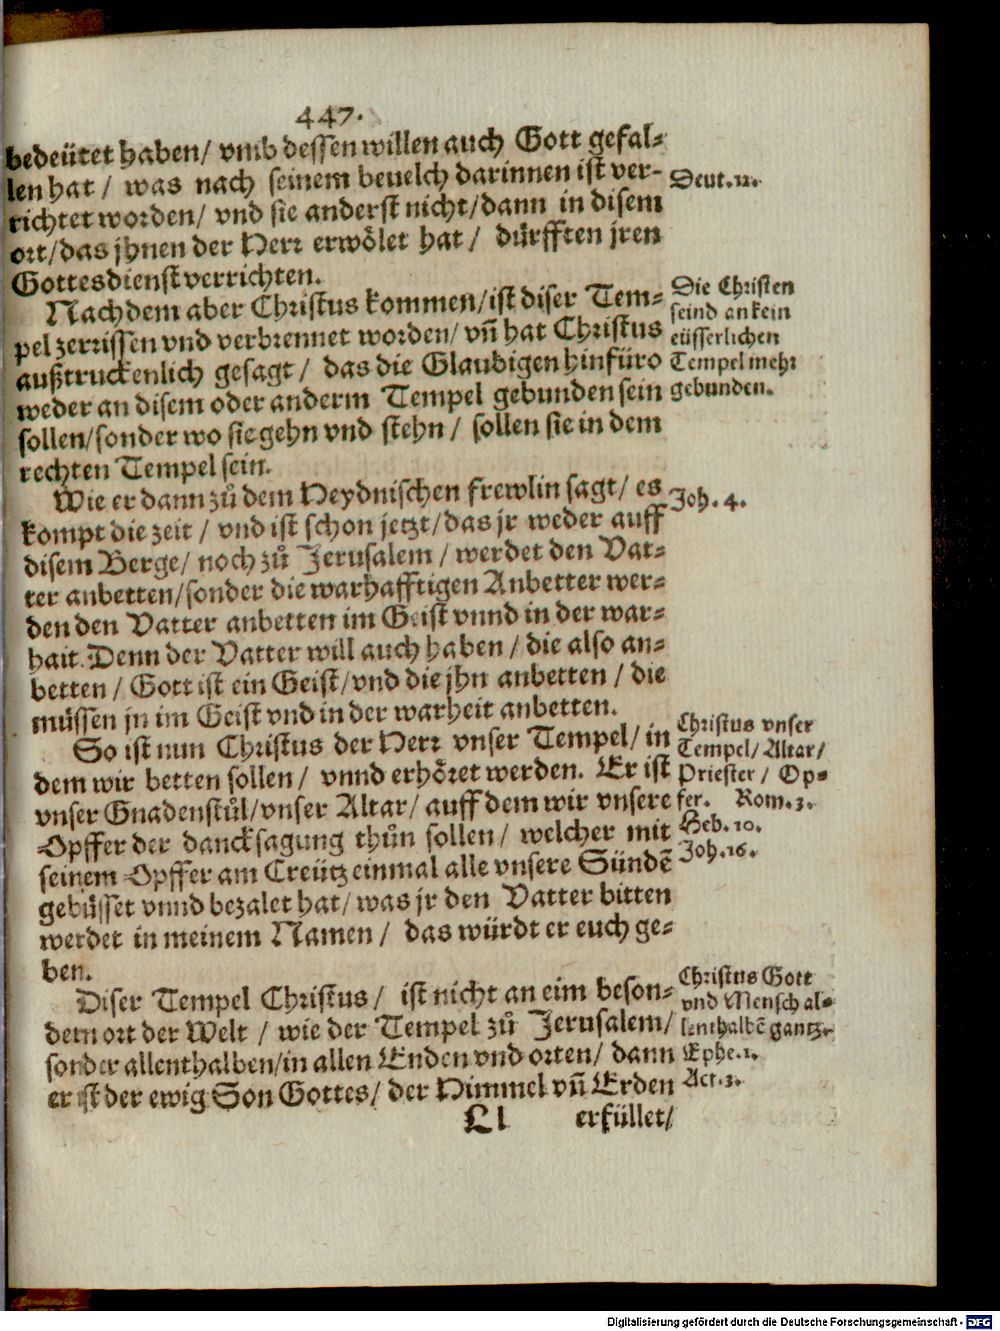 447.
bedeütet haben/ vmb dessen willen auch Gott gefal-
len hat / was nach seinem beuelch darinnen ist ver-
richtet worden/ vnd sie anderst nicht/dann in disem
ort/das jhnen der Herr erwölet hat / dürfften jren
Gottesdienst verrichten.
Deut. 12.
Nachdem aber Christus kommen/ist diser Tem-
pel zerrissen vnd verbrennet worden/ vñ hat Christus
außtruckenlich gesagt / das die Glaubigen hinfüro
weder an disem oder anderm Tempel gebunden sein
sollen/sonder wo sie gehn vnd stehn / sollen sie in dem
rechten Tempel sein.
Die Christen
seind an kein
eüsserlichen
Tempel mehr
gebunden.
Wie er dann zů dem Heydnischen frewlin sagt/ es
kompt die zeit / vnd ist schon jetzt/das jr weder auff
disem Berge/ noch zů Jerusalem / werdet den Vat-
ter anbetten/sonder die warhafftigen Anbetter wer-
den den Vatter anbetten im Geist vnnd in der war-
hait. Denn der Vatter will auch haben / die also an-
betten / Gott ist ein Geist/vnd die jhn anbetten / die
müssen jn im Geist vnd in der warheit anbetten.
Joh. 4.
So ist nun Christus der Herr vnser Tempel/ in
dem wir betten sollen / vnnd erhöret werden. Er ist
vnser Gnadenstůl/vnser Altar/ auff dem wir vnsere
Opffer der dancksagung thůn sollen/ welcher mit
seinem Opffer am Creütz einmal alle vnsere Sündẽ
gebüsset vnnd bezalet hat/ was jr den Vatter bitten
werdet in meinem Namen / das würdt er euch ge-
ben.
Christus vnser
Tempel/ Altar/
Priester / Op-
fer. Rom. 3.
Heb. 10.
Joh. 16.
Diser Tempel Christus / ist nicht an eim beson-
dern ort der Welt / wie der Tempel zů Jerusalem/
sonder allenthalben/in allen Enden vnd orten/ dann
er ist der ewig Son Gottes/ der Himmel vñ Erden
Christus Gott
vnd Mensch al-
lenthalbẽ gantz.
Ephe. 1.
Act. 3.
Ll erfüllet/
Digitalisierung gefördert durch die Deutsche Forschungsgemeinschaft - DFG